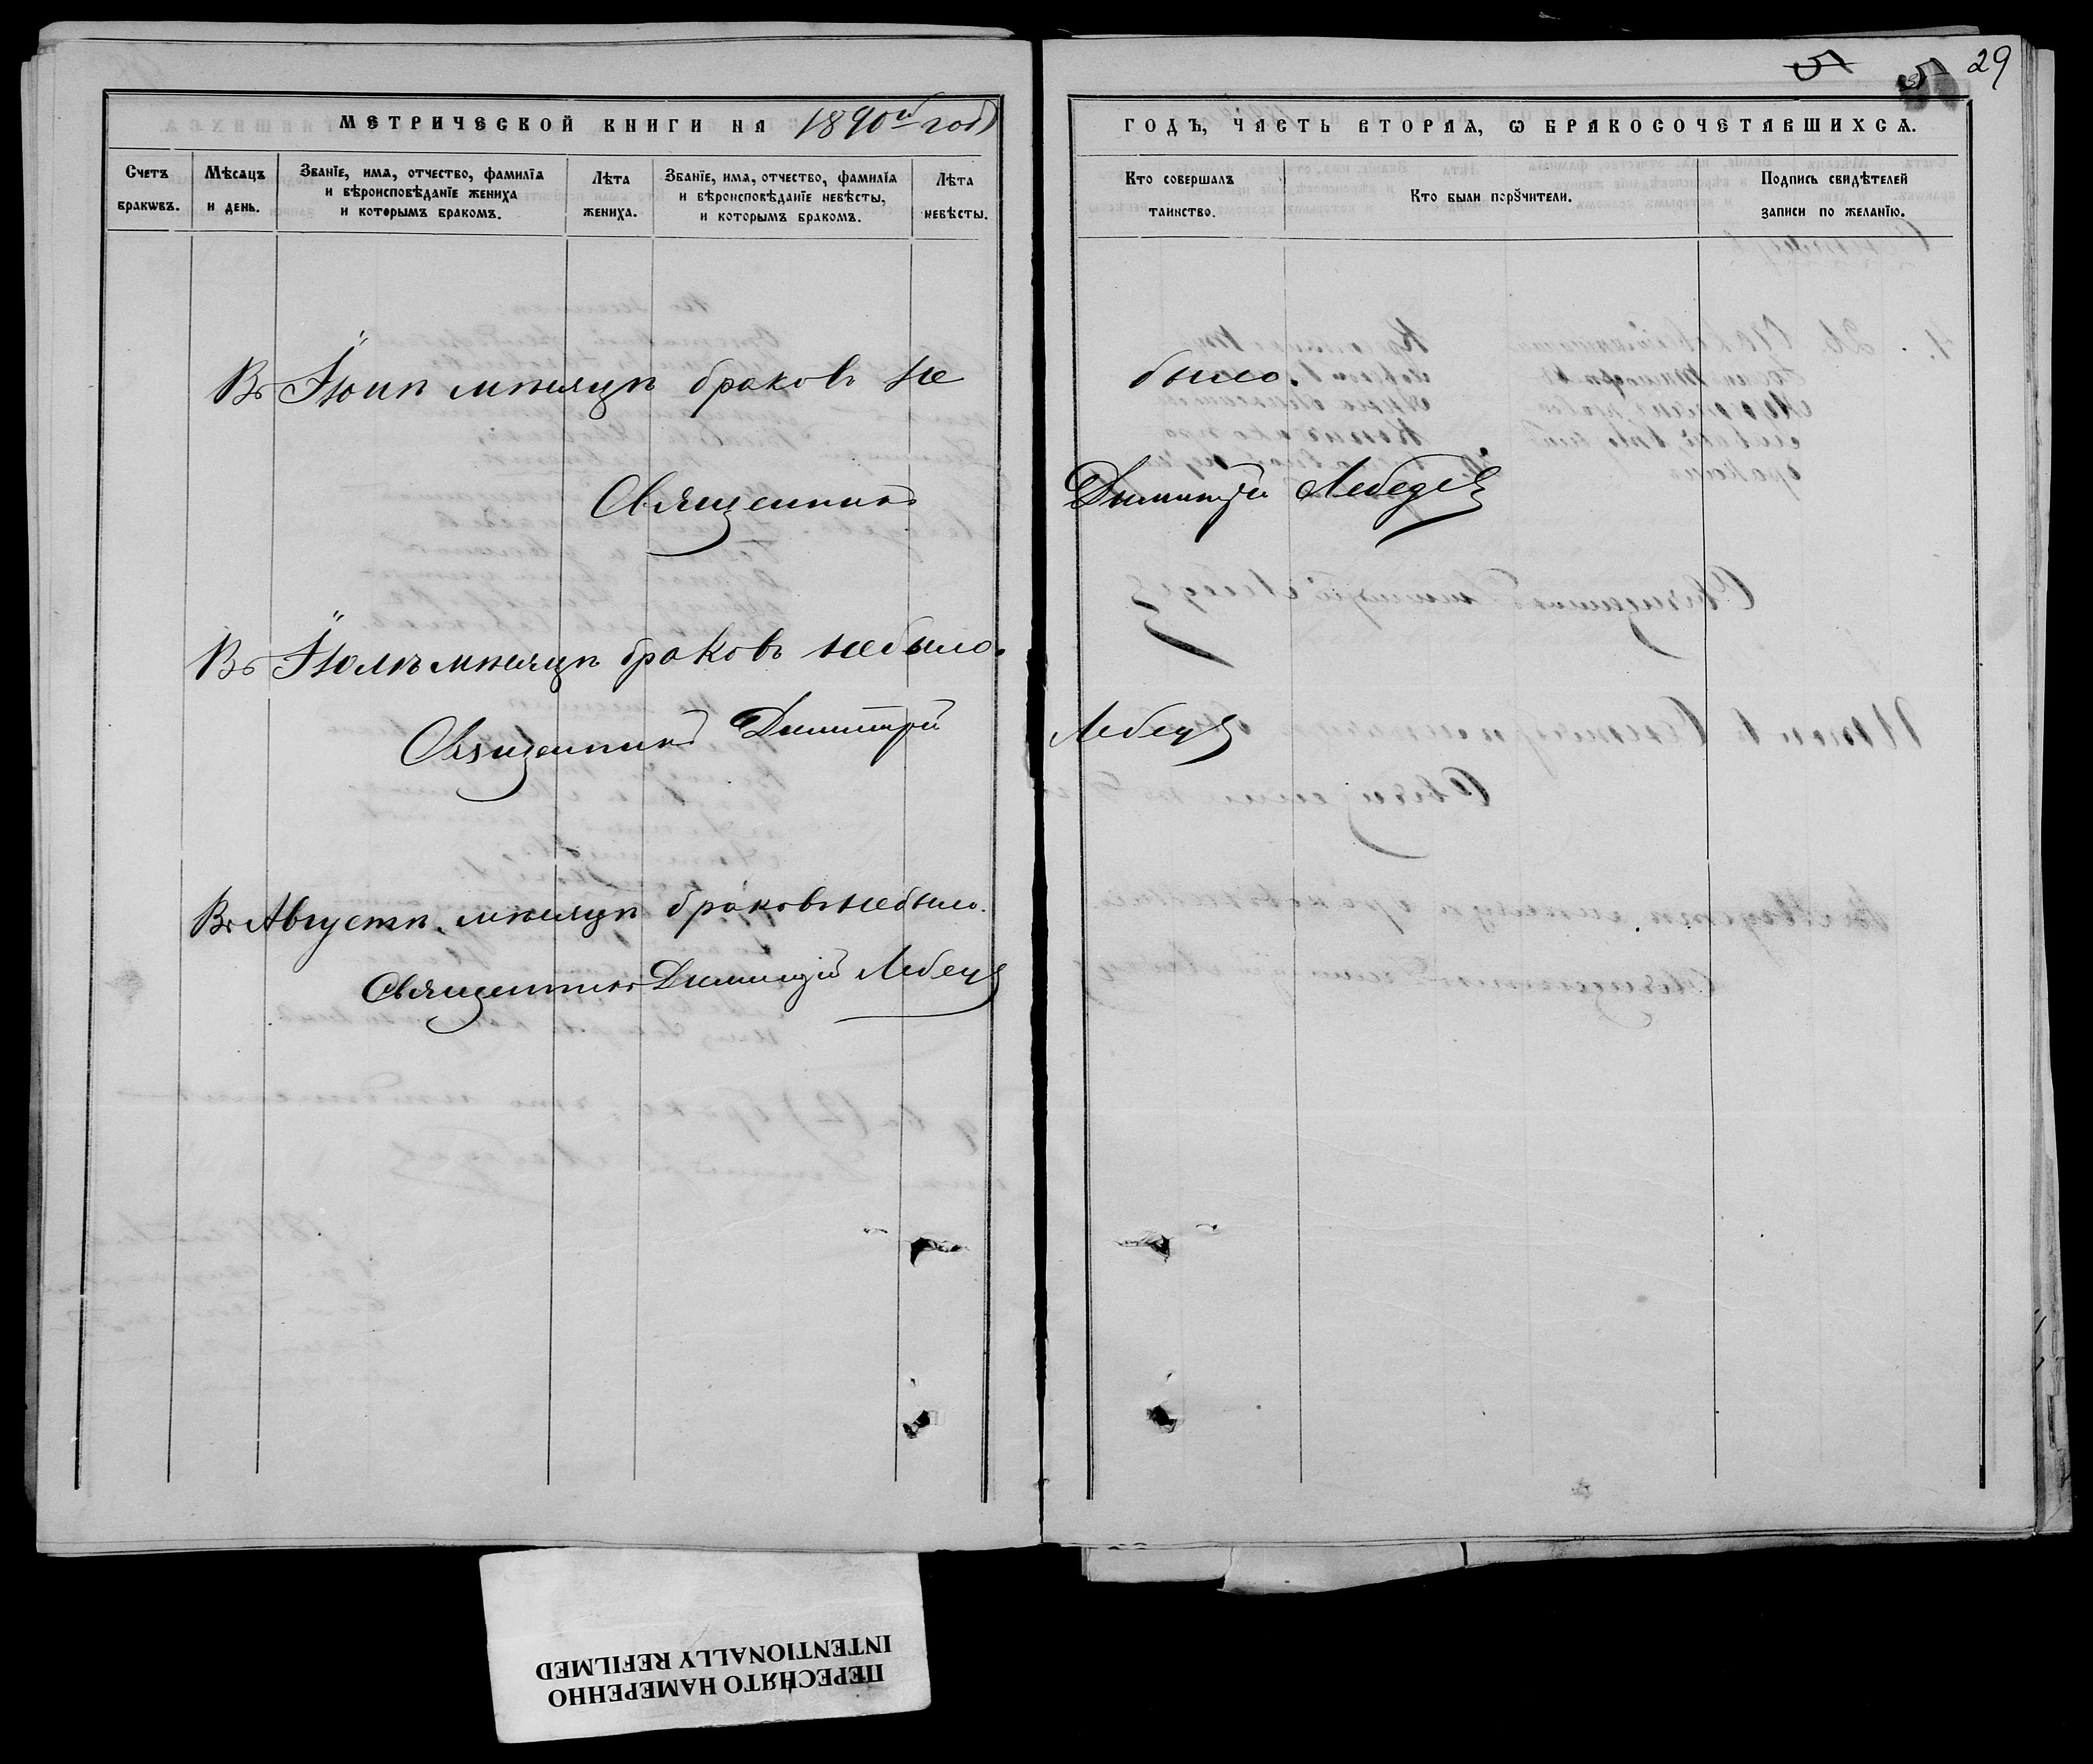 5 5 29
МЕТРИЧЕСКОЙ КНИГИ НА 1890й годъ
ГОДЪ, ЧАСТЬ ВТОРАЯ, Ѡ БРАКОСОЧЕТАВШИХСѦ.
Счетъ бракѡвъ.
Мѣсѧцъ и день.
Званїе, имѧ, отчество, фамилїѧ
и вѣроисповѣданїе жениха
и которымъ бракомъ.
Лѣта жениха.
Званїе, имѧ, отчество, фамилїѧ
и вѣроисповѣданїе невѣсты,
и которымъ бракомъ.
Лѣта невѣсты.
Кто совершалъ
таинство.
Кто были порꙋчители.
Подпись свидѣтелей
записи по желанїю.
Въ Іюнѣ мѣсяцѣ браковъ не было.
Священникъ Димитрій Лебедев
Въ Іюлѣ мѣсяцѣ браковъ небыло.
Священникъ Димитрій Лебедев
Въ Августѣ мѣсяцѣ браковъ небыло.
Священникъ Димитрій Лебедев
ПЕРЕСНЯТО НАМЕРЕННО
INTENTIONALLY REFILMED